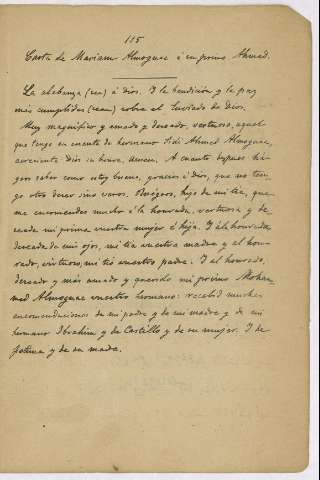 115
Carta de Mariam Almoguac á su primo Ahmed.
La alabanza (sea) á Dios. Y la bendición y la paz
más cumplidas (sean) sobre el Enviado de Dios.
Muy magnífico y amado y deseado, virtuoso, aquel
que tengo en cuenta de hermano Sidi Ahmed Almoguac,
acreciente Dios su honra, amen. A cuanto después há-
gos saber como estoy bueno, gracias á Dios, que no ten-
go otro deseo sino veros. Ruégoos, hijo de mi tía, que
me encomendes mucho á la honrada, virtuosa y de-
seada mi prima vuestra mujer é hija. Y á la honrada,
deseada de mis ojos, mi tía vuestra madre y al hon-
rado, virtuoso, mi tío vuestro padre. Y al honrado,
deseado y más amado y querido mi primo Moham-
med Almoguac vuestro hermano: recebid muchas
encomendaciones de mi padre y de mi madre y de mi
hermano Ibrahim y de Castillo y de su mujer. Y de
Fatima y de su madre.